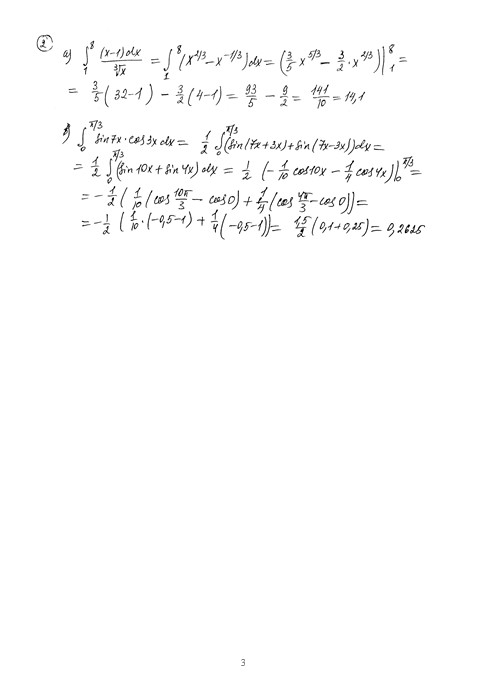 2
а) ∫₁⁸ (x-1)dx/∛x = ∫₁⁸ (x^2/3 - x^-1/3)dx = (3/5 x^5/3 - 3/2 · x^2/3)|₁⁸ =
= 3/5 (32-1) - 3/2 (4-1) = 93/5 - 9/2 = 141/10 = 14,1
в) ∫₀^π/3 sin7x · cos3x dx = 1/2 ∫₀^π/3 (sin(7x+3x) + sin(7x-3x))dx =
= 1/2 ∫₀^π/3 (sin10x + sin4x)dx = 1/2 (-1/10 cos10x - 1/4 cos4x)|₀^π/3 =
= -1/2 (1/10 (cos 10π/3 - cos0) + 1/4 (cos 4π/3 - cos0)) =
= -1/2 (1/10 · (-0,5-1) + 1/4 (-0,5-1)) = 1,5/2 (0,1+0,25) = 0,2625
3